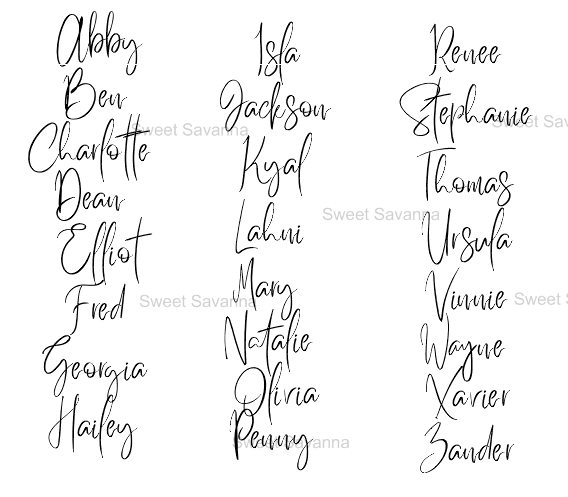 Abby
Ben
Charlotte
Dean
Elliot
Fred
Georgia
Hailey
Isla
Jackson
Kyal
Lahni
Mary
Natalie
Olivia
Penny
Renee
Stephanie
Thomas
Ursula
Vinnie
Wayne
Xavier
Zander
Sweet Savanna
Sweet Savanna
Sweet Savanna
Sweet Savanna
Sweet Sa
Sweet S